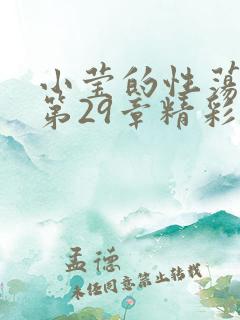 小莹的性荡
第29章精彩
孟德
未经同意禁止转载